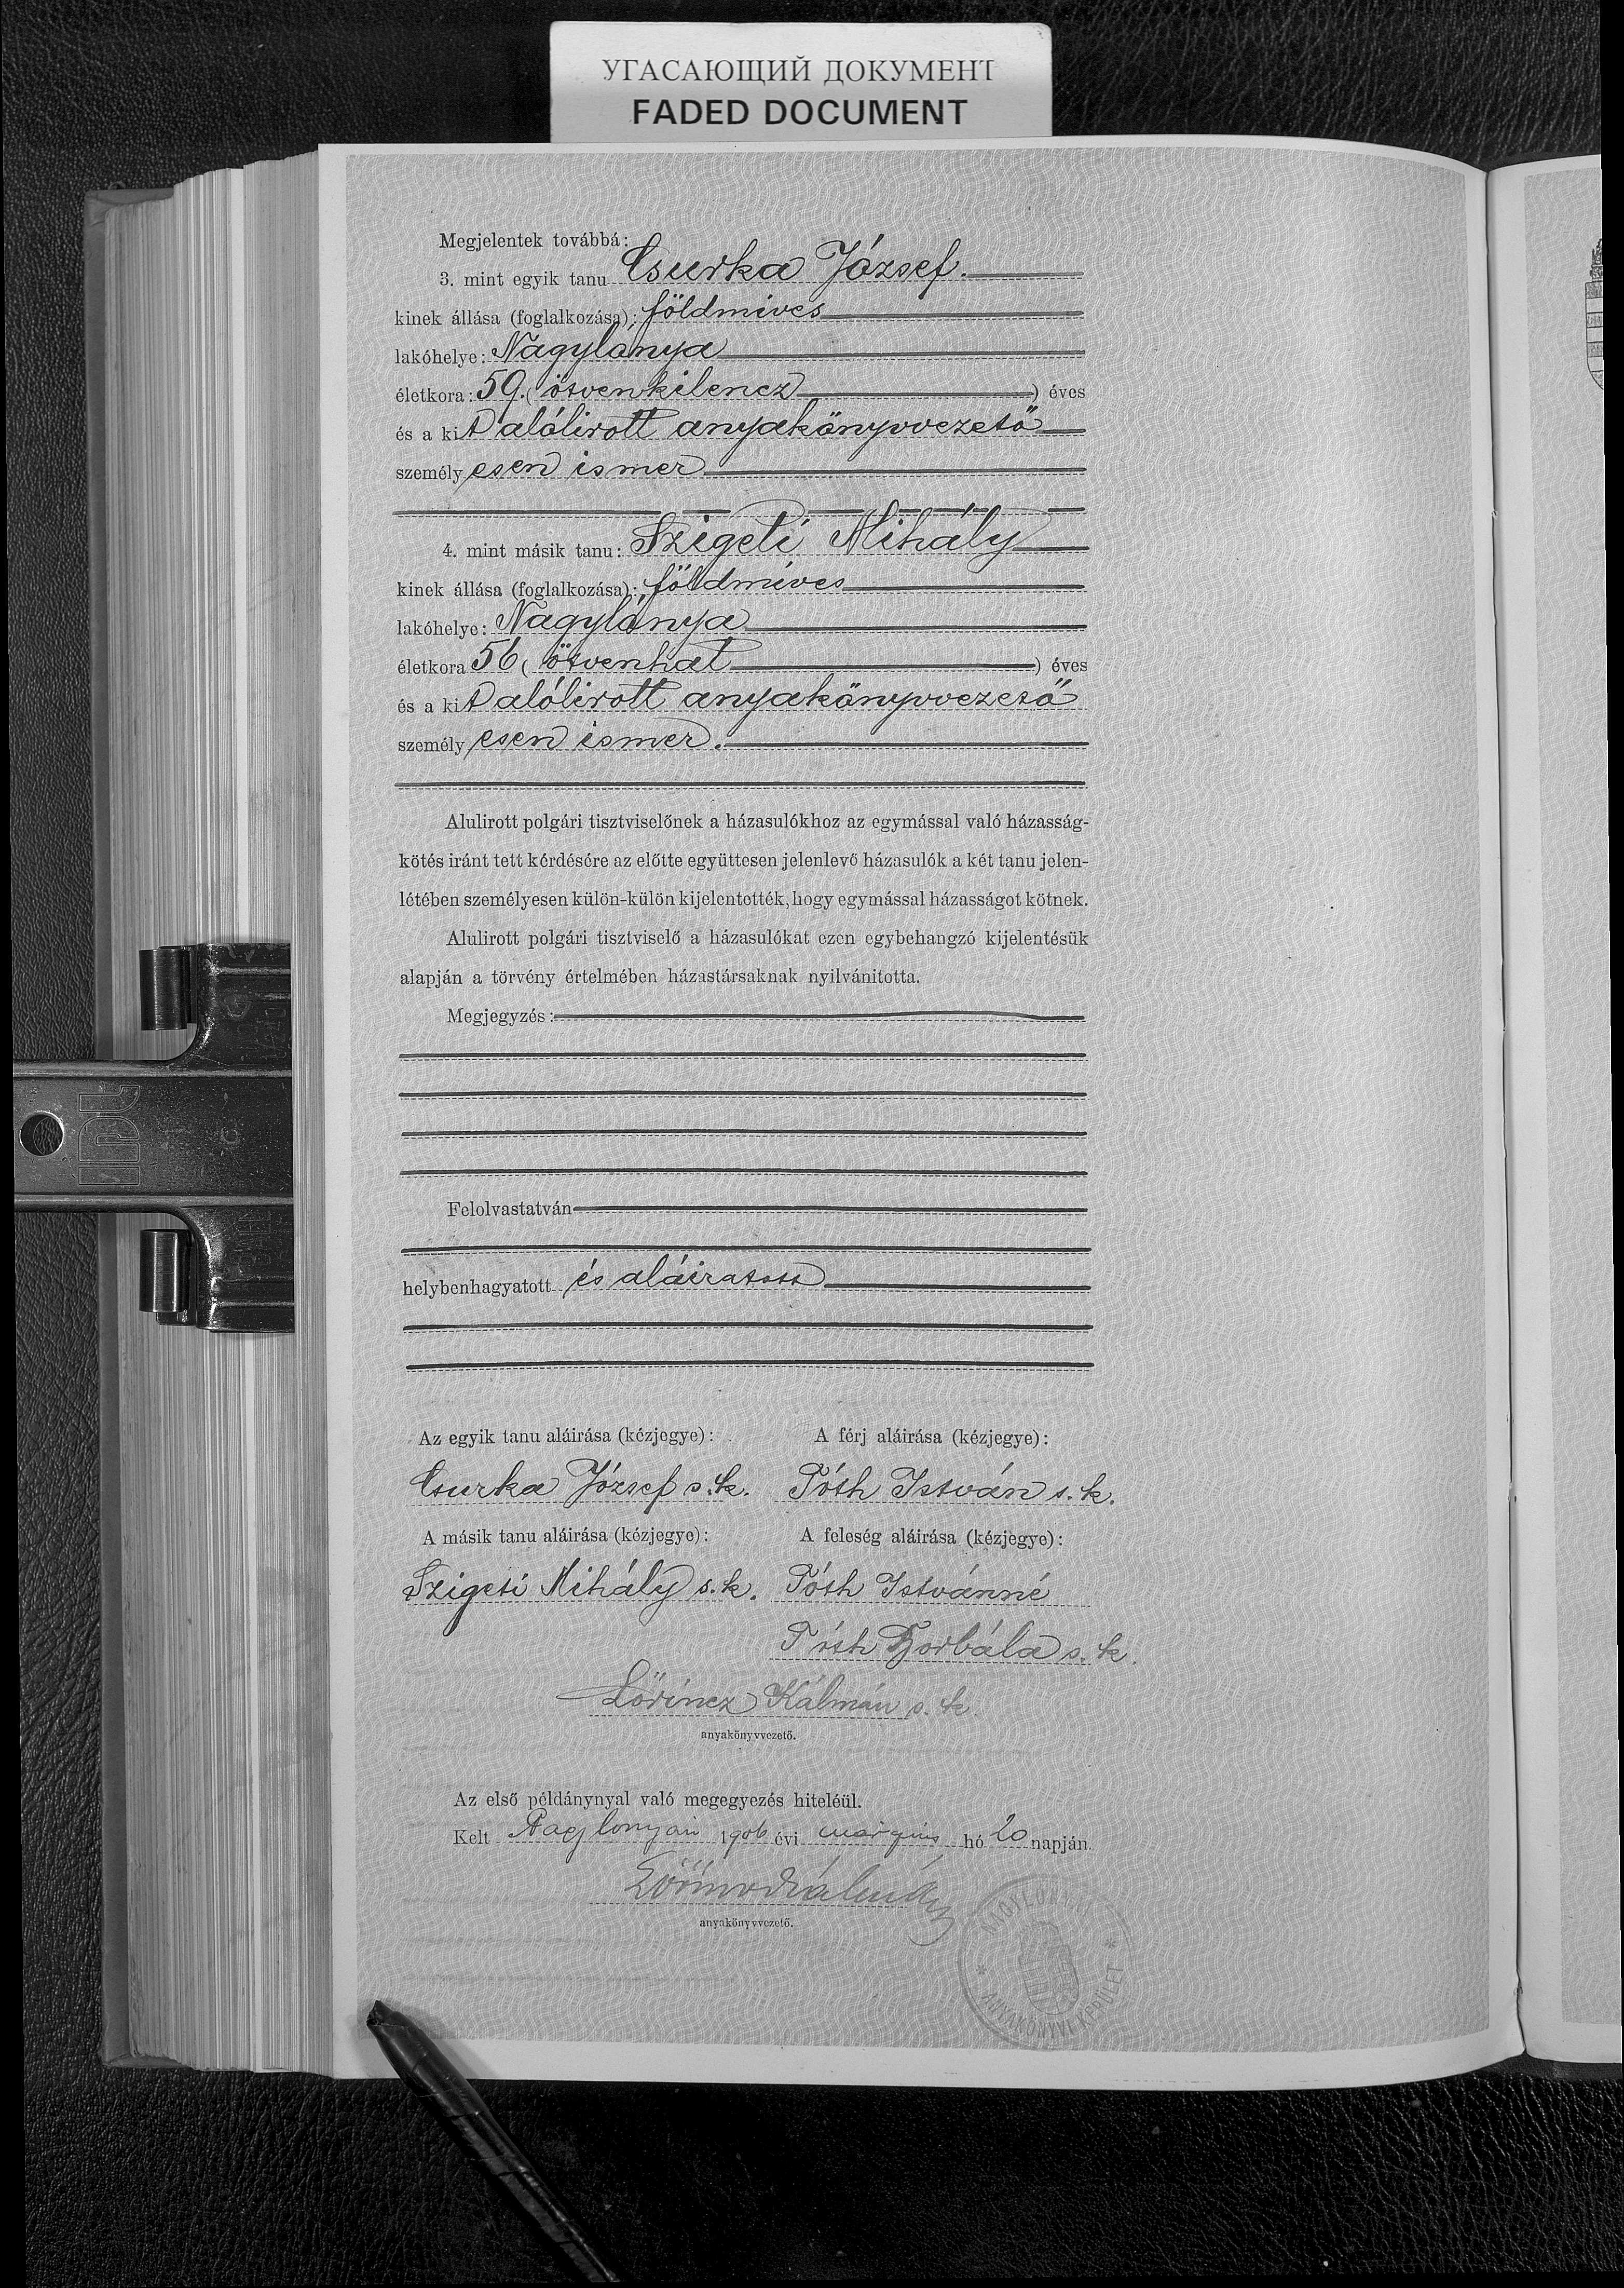 УГАСАЮЩИЙ ДОКУМЕНТ
FADED DOCUMENT
Megjelentek továbbá:
3. mint egyik tanu Csurka József.
kinek állása (foglalkozása): földmives
lakóhelye: Nagylónya
életkora: 59. (ötvenkilencz) éves
és a kit alólirott anyakönyvvezető
személyesen ismer
4. mint másik tanu: Szigeti Mihály
kinek állása (foglalkozása): földmives
lakóhelye: Nagylónya
életkora 56 (ötvenhat) éves
és a kit alólirott anyakönyvvezető
személyesen ismer.
Alulirott polgári tisztviselőnek a házasulókhoz az egymással való házasság-
kötés iránt tett kérdésére az előtte együttesen jelenlevő házasulók a két tanu jelen-
létében személyesen külön-külön kijelentették, hogy egymással házasságot kötnek.
Alulirott polgári tisztviselő a házasulókat ezen egybehangzó kijelentésük
alapján a törvény értelmében házastársaknak nyilvánitotta.
Megjegyzés:
Felolvastatván
helybenhagyatott és aláiratott
Az egyik tanu aláirása (kézjegye): A férj aláirása (kézjegye):
Csurka József s.k. Tóth István s.k.
A másik tanu aláirása (kézjegye): A feleség aláirása (kézjegye):
Szigeti Mihály s.k. Tóth Istvánné
Tóth Borbála s.k.
Lőrincz Kálmán s.k.
anyakönyvvezető.
Az első példánynyal való megegyezés hiteléül.
Kelt Nagylónyán 1906 évi márczius hó 20 napján.
Lőrincz Kálmán
anyakönyvvezető.
NAGYLÓNYAI
* ANYAKÖNYVI KERÜLET *